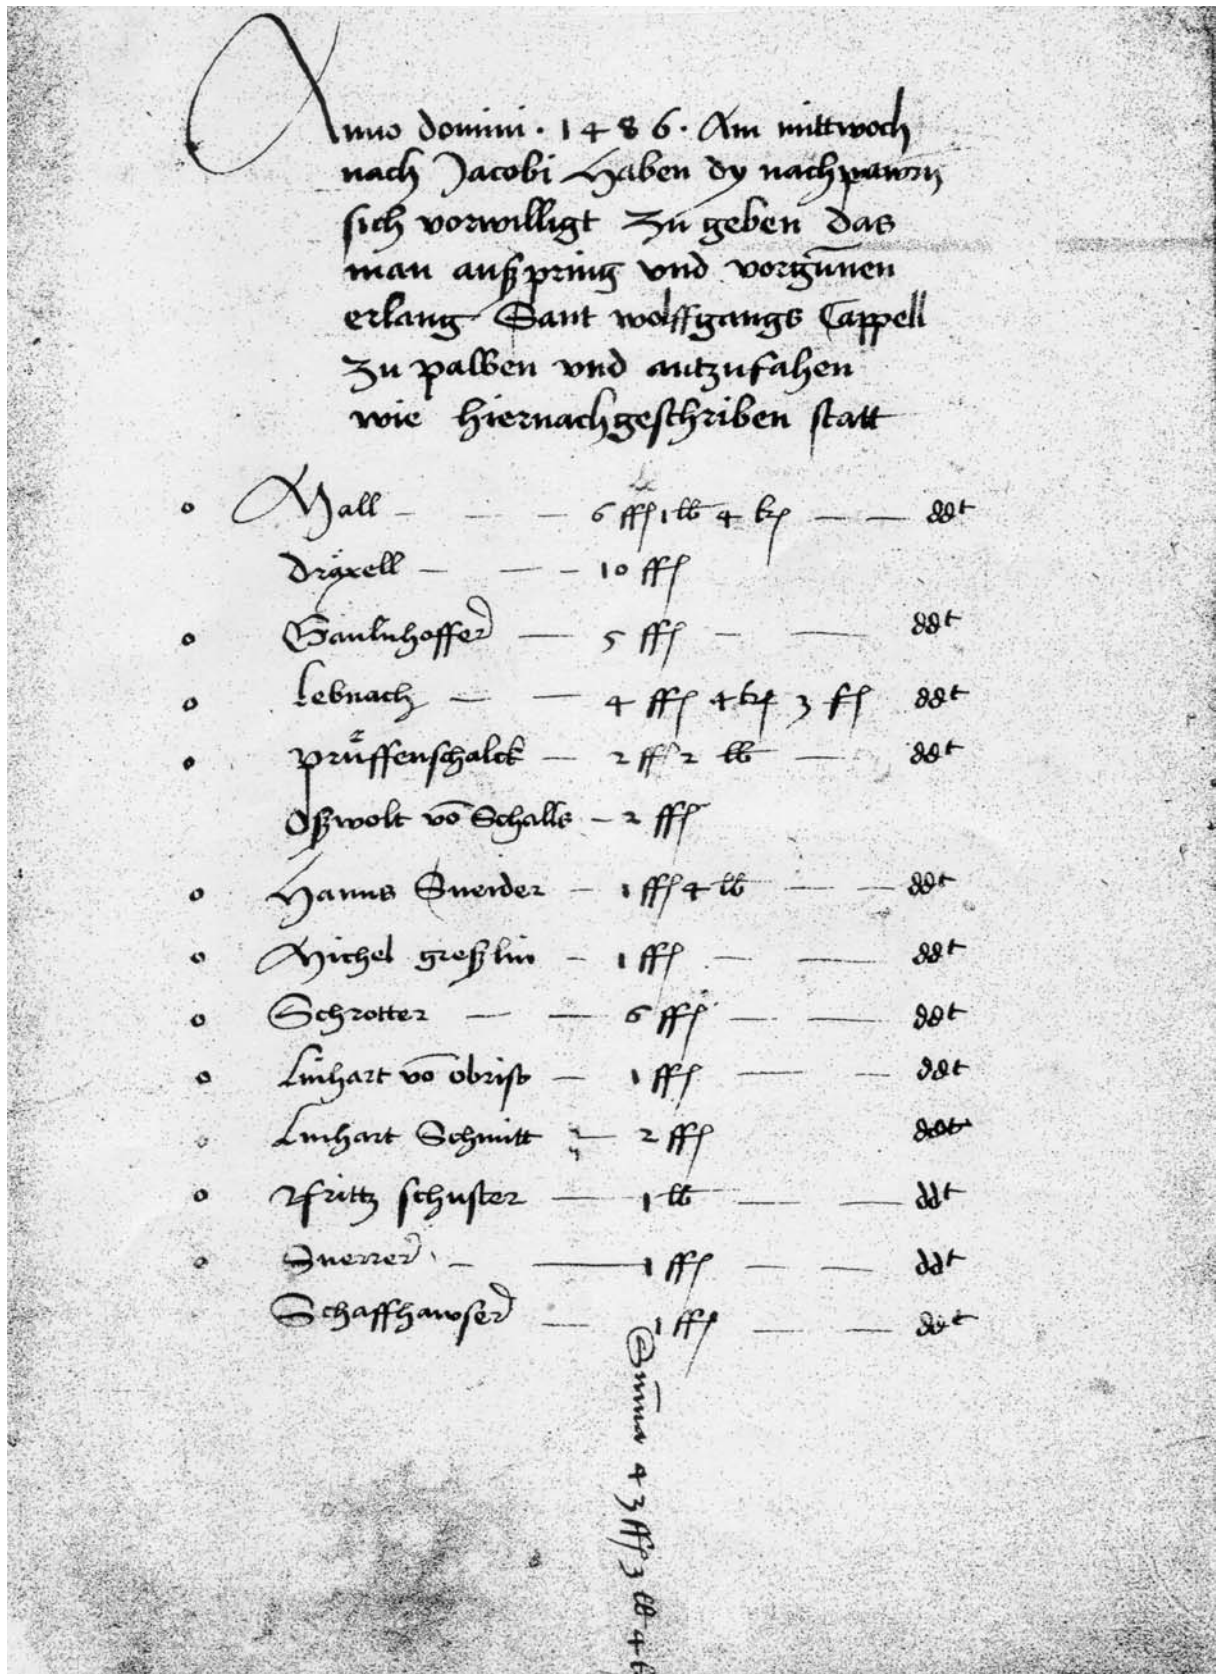 Anno domini · 1486 · Am mittwoch
nach Jacobi Haben dy nachpawrn
sich vorwilligt zu geben das
man außpring vnd vorgūnen
erlang Sant wolffgangs Cappell
zu pawen vnd antzufahen
wie hiernachgeschriben statt
Mall — 6 ff 1 lb 4 kr — ddt
Dräxell — 10 ff
— 5 ff — ddt
Lebnach — 4 ff 4 kr 3 f ddt
Průffenschalck — 2 ff 2 lb — ddt
Oßwolt vō Schalls — 2 ff
Hanns Sneider — 1 ff 4 lb — ddt
Michel greßlin — 1 ff — ddt
Schrotter — 6 ff — ddt
Linhart vō obrist — 1 ff — ddt
Linhart Schmitt — 2 ff
Fritz schuster — 1 lb — ddt
— 1 ff — ddt
Schaffhawser — 1 ff — ddt
Sūma 43 ff 3 lb 4